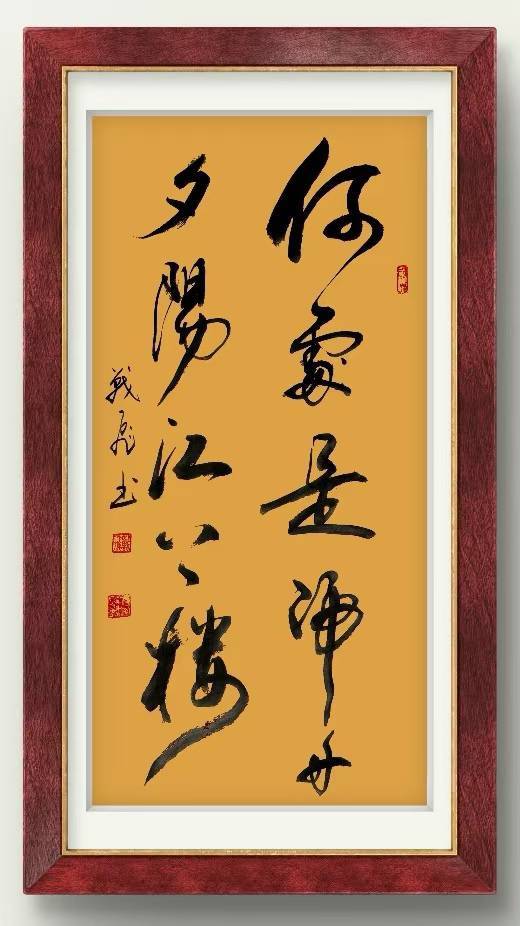 何處是歸舟
夕陽江上樓
戰飛书